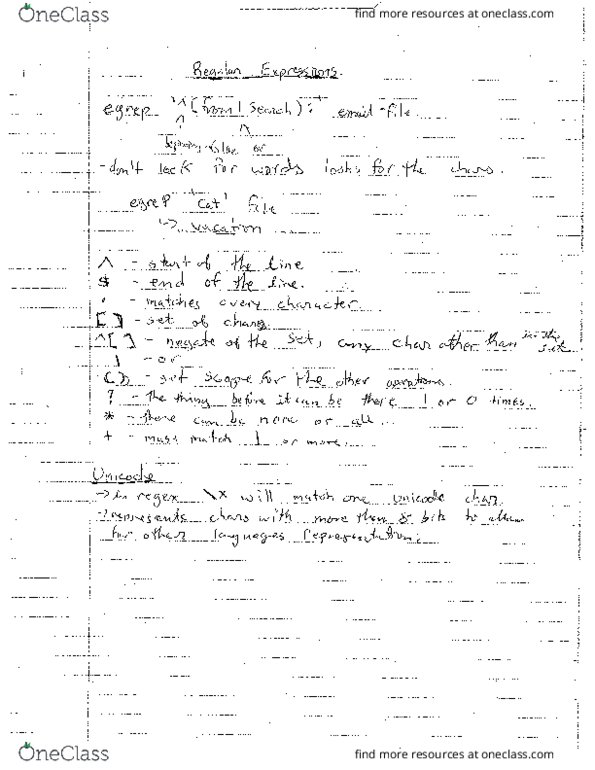 OneClass
find more resources at oneclass.com
Regular Expressions.
egrep '^(from|search):' email-file
beginning of line or
-don't look for words looks for the chars.
egrep 'cat' file
↳ vacation
^ - start of the line
$ - end of the line.
. - matches every character
[] - set of chars
^[] - negate of the set, any char other than in the set
| - or
() - set scope for the other operations
? - the thing before it can be there 1 or 0 times.
* - there can be none or all.
+ - must match 1 or more.
Unicode
→ in regex \x will match one unicode char
→ represents chars with more than 8 bits to allow
for other languages representation.
OneClass
find more resources at oneclass.com